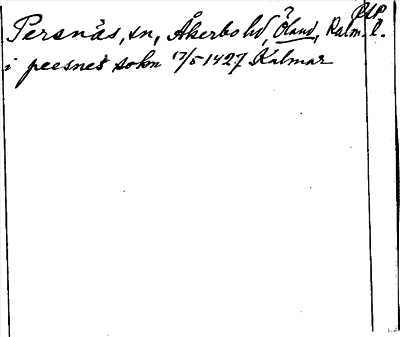 PSP
Persnäs, sn, Åkerbo hd, Öland, Kalm. l.
i peesnes sokn 17/5 1427 Kalmar